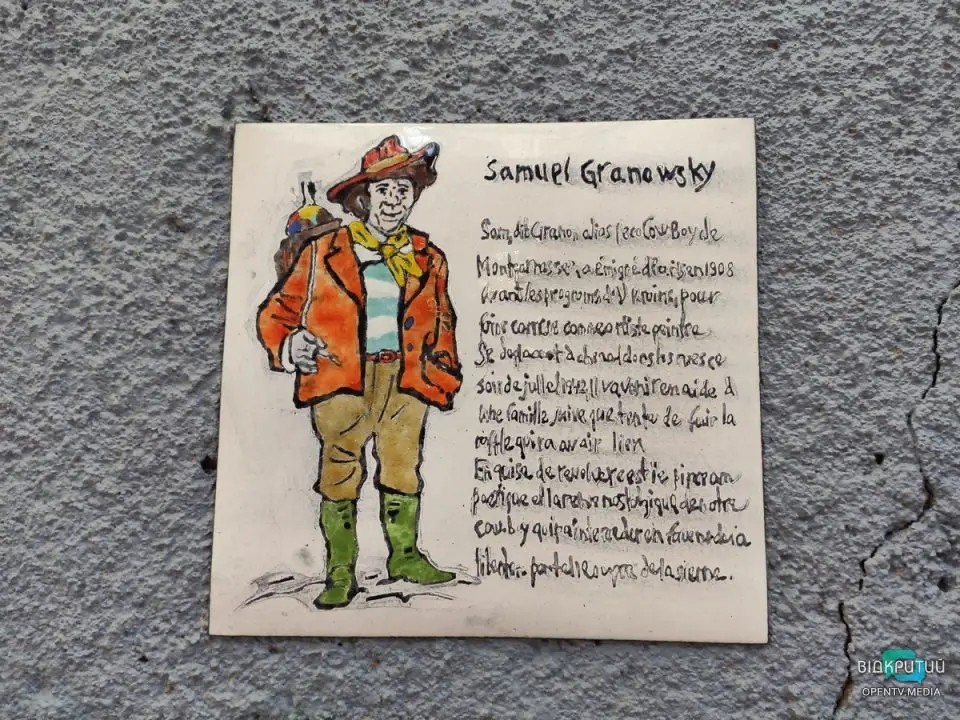 Samuel Granowsky
Sam, dit Grano, alias le CowBoy de
Montparnasse, a émigré à Paris en 1908
avant les progroms d'Ukraine, pour
faire carrière comme artiste peintre
Se déplaçant à cheval dans les rues ce
soir de juillet 1942 Il va venir en aide à
une famille juive qui tente de fuir la
raffle qui va avoir lieu
En guise de revolver c'est le
poétique et la nostalgique de notre
cowboy qui intercéder en faveur de la
liberté. de la sienne.
ВІДКРИТИЙ
OPENTV.MEDIA